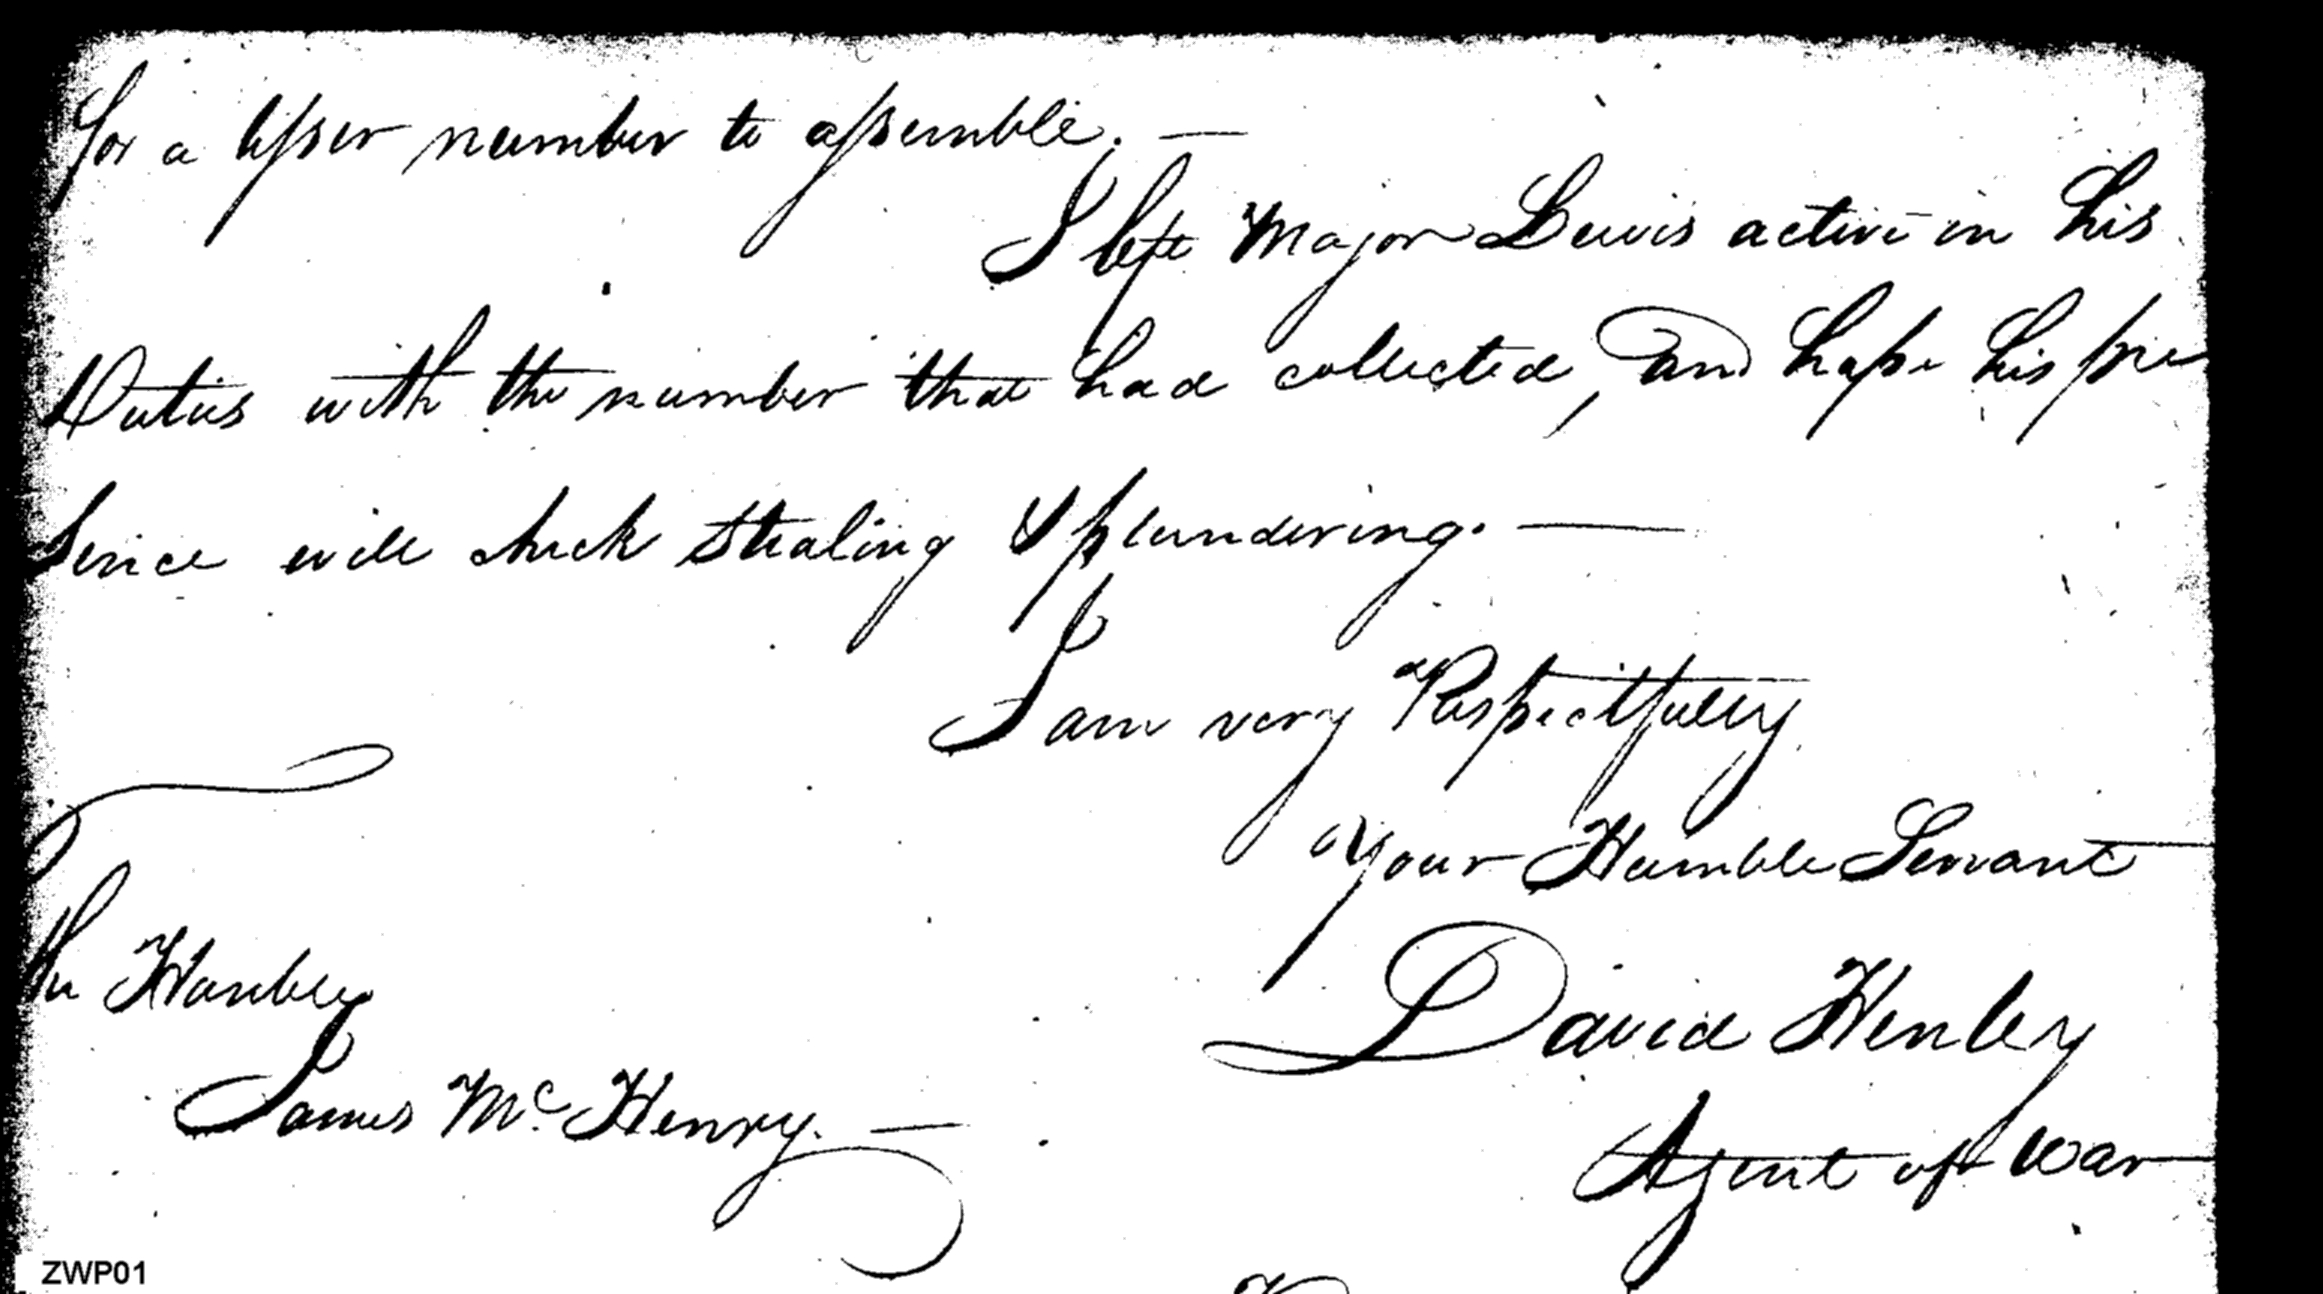 for a lesser number to assemble. —
I left Major Lewis active in his
Duties with the number that had collected, and hope his pre
sence will check stealing & plundering. —
I am very Respectfully
Your Humble Servant
David Henley
Agent of War
The Honble
James McHenry. —
ZWP01